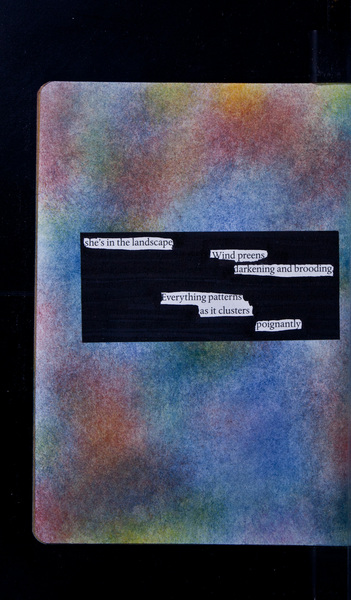 she's in the landscape
Wind preens
darkening and brooding,
Everything patterns
as it clusters
poignantly